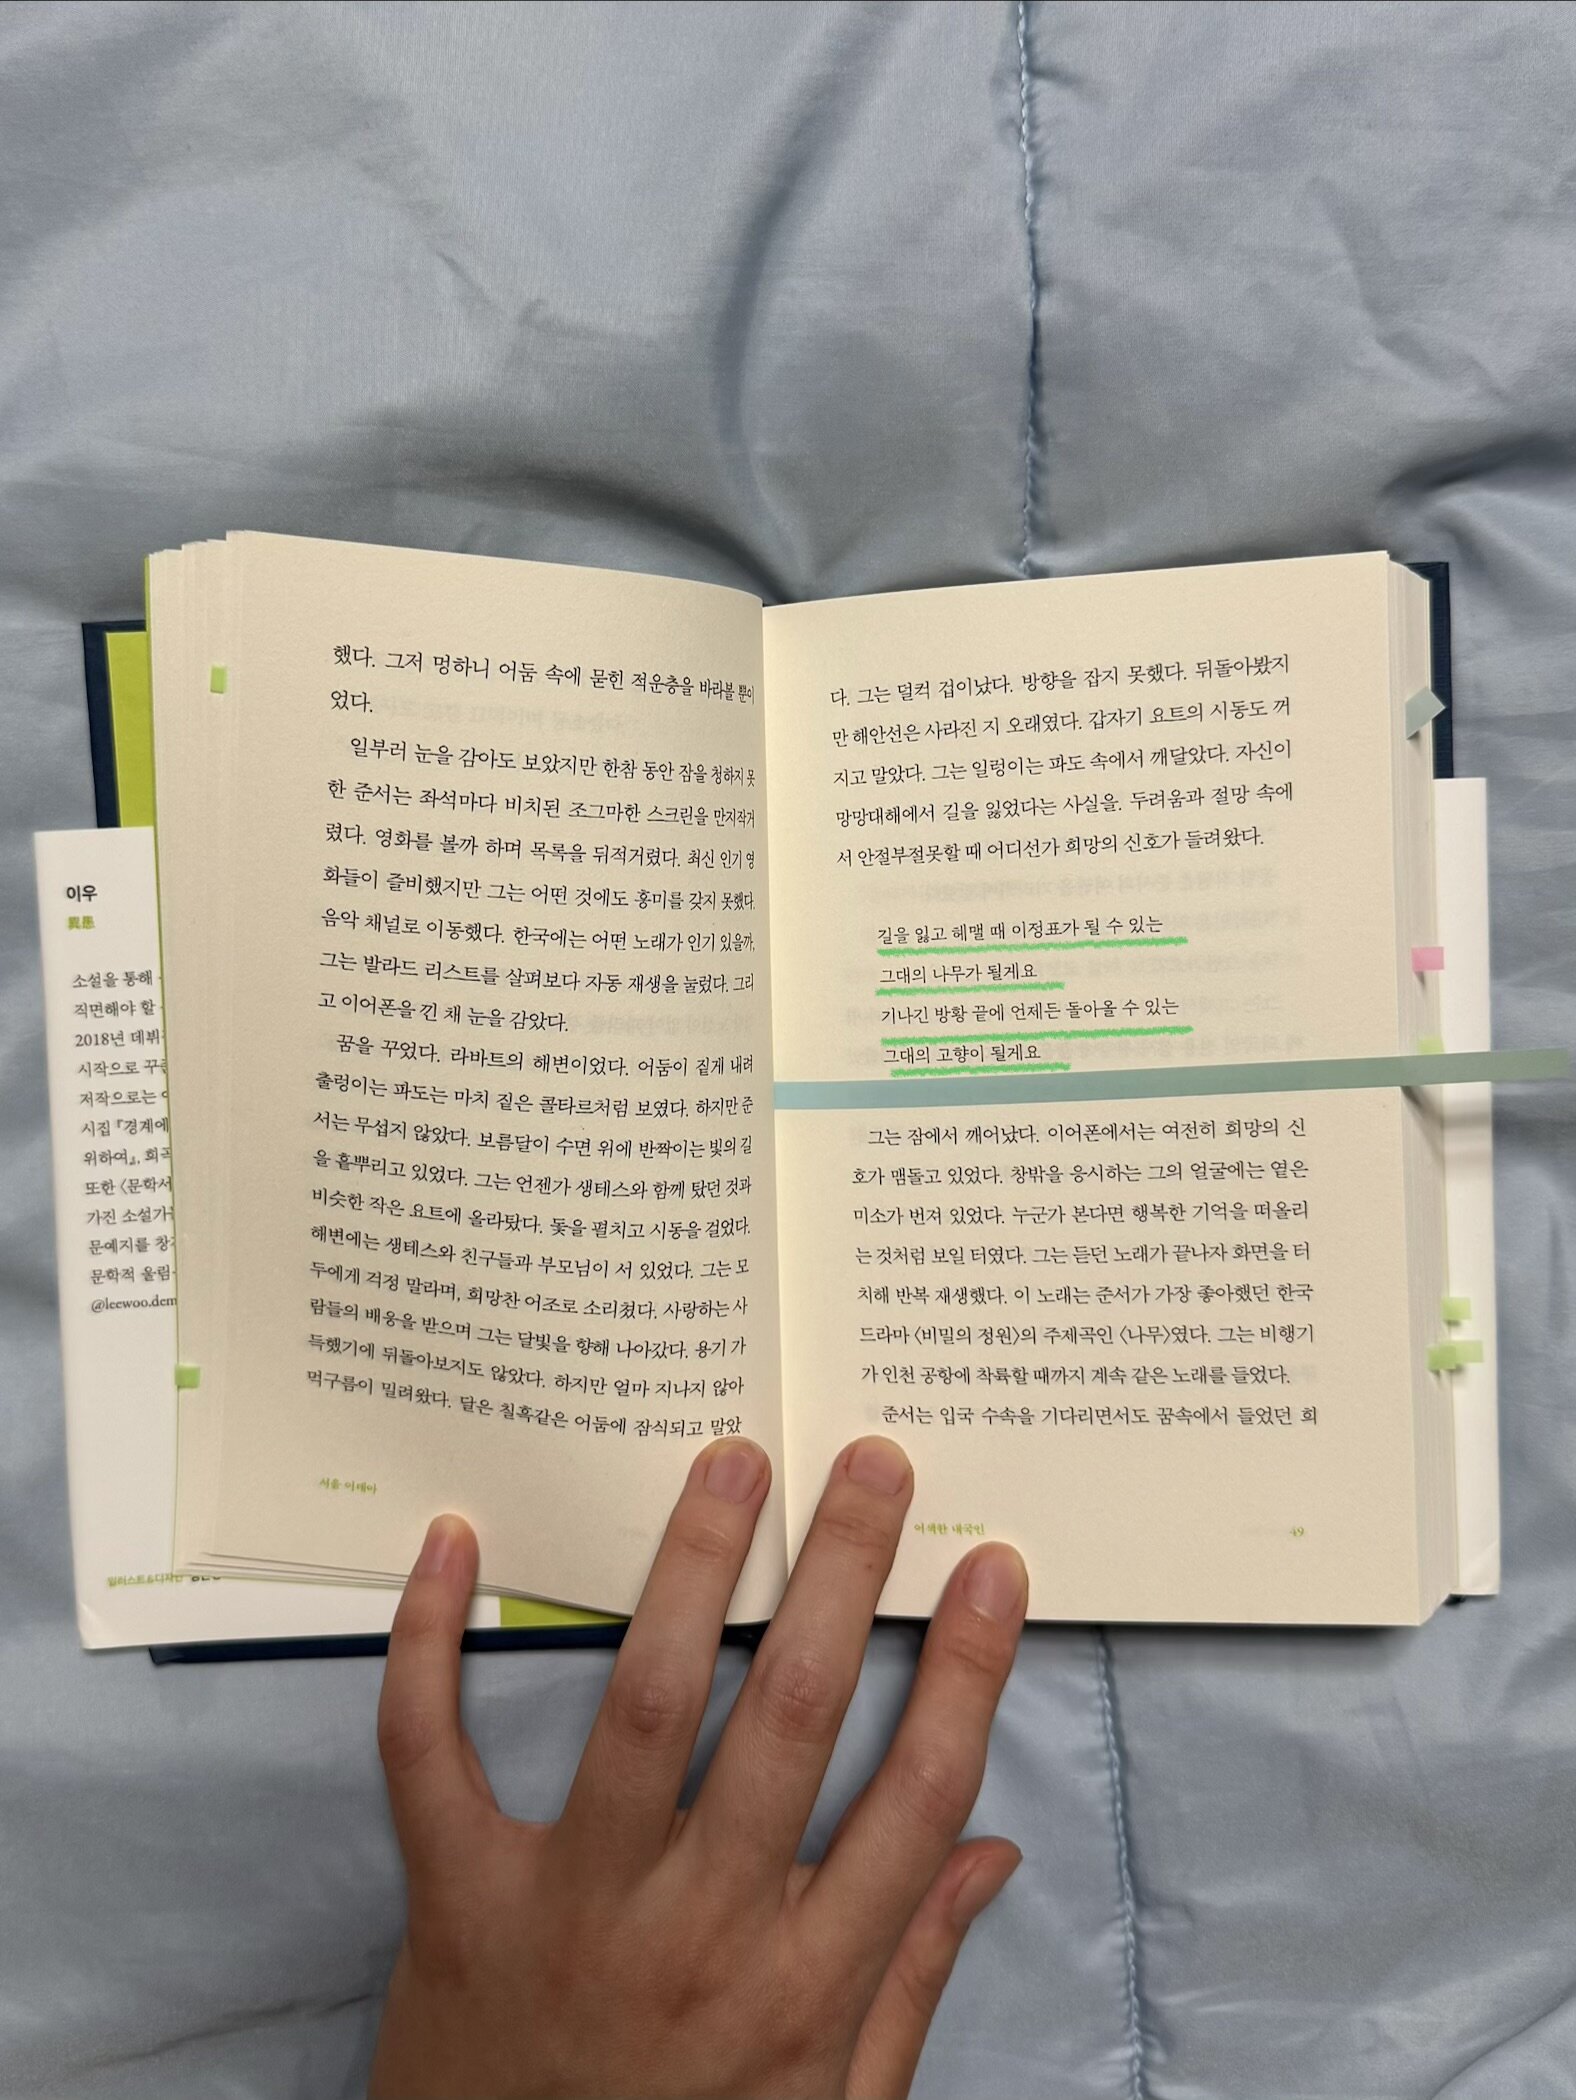 이우
異愚
소설을 통해
직면해야 할
2018년 데뷔
시작으로 꾸준
저작으로는
시집 『경계에
위하여』, 희곡
또한 〈문학서
가진 소설가
문예지를 창
문학적 울림
@leewoo.dem
일러스트&디자인
했다. 그저 멍하니 어둠 속에 묻힌 적운층을 바라볼 뿐이
었다.
일부러 눈을 감아도 보았지만 한참 동안 잠을 청하지 못
한 준서는 좌석마다 비치된 조그마한 스크린을 만지작거
렸다. 영화를 볼까 하며 목록을 뒤적거렸다. 최신 인기 영
화들이 즐비했지만 그는 어떤 것에도 흥미를 갖지 못했다.
음악 채널로 이동했다. 한국에는 어떤 노래가 인기 있을까,
그는 발라드 리스트를 살펴보다 자동 재생을 눌렀다. 그리
고 이어폰을 낀 채 눈을 감았다.
꿈을 꾸었다. 라바트의 해변이었다. 어둠이 짙게 내려
출렁이는 파도는 마치 짙은 콜타르처럼 보였다. 하지만 준
서는 무섭지 않았다. 보름달이 수면 위에 반짝이는 빛의 길
을 흩뿌리고 있었다. 그는 언젠가 생테스와 함께 탔던 것과
비슷한 작은 요트에 올라탔다. 돛을 펼치고 시동을 걸었다.
해변에는 생테스와 친구들과 부모님이 서 있었다. 그는 모
두에게 걱정 말라며, 희망찬 어조로 소리쳤다. 사랑하는 사
람들의 배웅을 받으며 그는 달빛을 향해 나아갔다. 용기 가
득했기에 뒤돌아보지도 않았다. 하지만 얼마 지나지 않아
먹구름이 밀려왔다. 달은 칠흑같은 어둠에 잠식되고 말았
서울 이데아
다. 그는 덜컥 겁이났다. 방향을 잡지 못했다. 뒤돌아봤지
만 해안선은 사라진 지 오래였다. 갑자기 요트의 시동도 꺼
지고 말았다. 그는 일렁이는 파도 속에서 깨달았다. 자신이
망망대해에서 길을 잃었다는 사실을. 두려움과 절망 속에
서 안절부절못할 때 어디선가 희망의 신호가 들려왔다.
길을 잃고 헤맬 때 이정표가 될 수 있는
그대의 나무가 될게요
기나긴 방황 끝에 언제든 돌아올 수 있는
그대의 고향이 될게요
그는 잠에서 깨어났다. 이어폰에서는 여전히 희망의 신
호가 맴돌고 있었다. 창밖을 응시하는 그의 얼굴에는 옅은
미소가 번져 있었다. 누군가 본다면 행복한 기억을 떠올리
는 것처럼 보일 터였다. 그는 듣던 노래가 끝나자 화면을 터
치해 반복 재생했다. 이 노래는 준서가 가장 좋아했던 한국
드라마 〈비밀의 정원〉의 주제곡인 〈나무〉였다. 그는 비행기
가 인천 공항에 착륙할 때까지 계속 같은 노래를 들었다.
준서는 입국 수속을 기다리면서도 꿈속에서 들었던 희
어색한 내국인
49